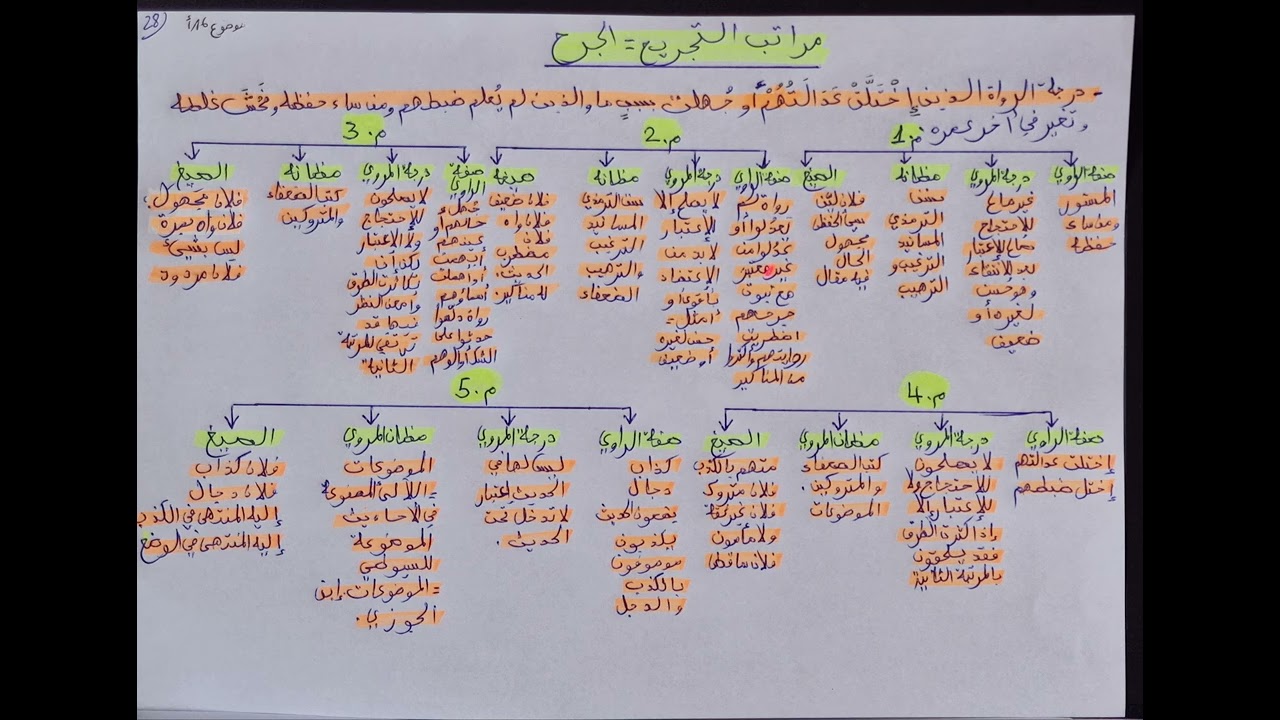 28)
موضوع 16أ
مراتب التجريح = الجرح
- درجة الرواة الذين إخْتَلَّتْ عَدَالَتُهُمْ أو جُهلت بسببٍ ما والذين لم يُعلم ضبطهم ومن ساء حفظه وفَحُشَ غلطه
وتغير في آخر عمره
م.1
صفة الراوي
المستور
ومن ساء
حفظه
درجة المروي
غير صالح
للاحتجاج
صالح للإعتبار
وهو حسن
لغيره أو
ضعيف
مظانه
سنن
الترمذي
المسانيد
الترغيب و
الترهيب
الصيغ
فلان ليّن
سيء الحفظ
مجهول
الحال
فيه مقال
م.2
صفة الراوي
رواة لم
يُعدّلوا أو
عُدّلوا من
غير معتبر
مع ثبوت
جرحهم
اضطربت
روايتهم وأكثروا
من المناكير
درجة المروي
لا يصلح إلا
لإعتبار
لابد من
الإعتضاد
بأقوى أو
أمثل =
حسن لغيره
أو ضعيف
مظانه
سنن الترمذي
المسانيد
الترغيب
والترهيب
الضعفاء
صيغه
فلان ضعيف
فلان واه
فلان
مضطرب
الحديث
له مناكير.
م.3
صفة
الراوي
جُهل
حالهم أو
عينهم
أبهمت
أو أهملت
أسماؤهم
رواة ثقوا
حدثوا على
الشك أو الوهم
درجة المروي
لا يصلحون
للإحتجاج
ولا الإعتبار
لكن إن
تكاثرت الطرق
وأمعن النظر
فيها قد
ترتقي للمرتبة
الثانية
مظانه
كتب الضعفاء
والمتروكين
الصيغ
فلان مجهول،
فلان واه بمرة
ليس بشيئ
فلان مردود
م.4
صفة الراوي
إختلت عدالتهم
إختل ضبطهم
درجة المروي
لا يصلحون
للإحتجاج ولا
للإعتبار إلا
إذا كثرة الطرق
فقد يلحقون
بالمرتبة الثانية
مظان المروي
كتب الضعفاء
والمتروكين.
الموضوعات
الصيغ
متهم بالكذب
فلان متروك
فلان غير ثقة
ولا مأمون
فلان ساقط
م.5
صفة الراوي
كذاب
دجال
يضعون الحديث
يكذبون
موصوفون
بالكذب
والدجل
درجة المروي
ليس لها في
الحديث إعتبار
لا تدخل تحت
الحديث.
مظان المروي
الموضوعات
= اللآلئ المصنوعة
في الأحاديث
الموضوعة
للسيوطي
= الموضوعات. إبن
الجوزي.
الصيغ
فلان كذاب
فلان دجال
إليه المنتهى في الكذب
إليه المنتهى في الوضع